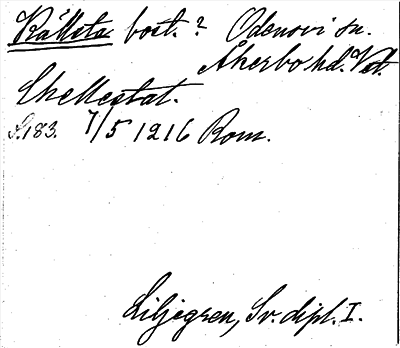 Källsta bost.? Odensvi sn.
Åkerbo hd. Vstl.
Chellestat.
S.183. 7/5 1216 Rom.
Liljegren, Sv. dipl. I.